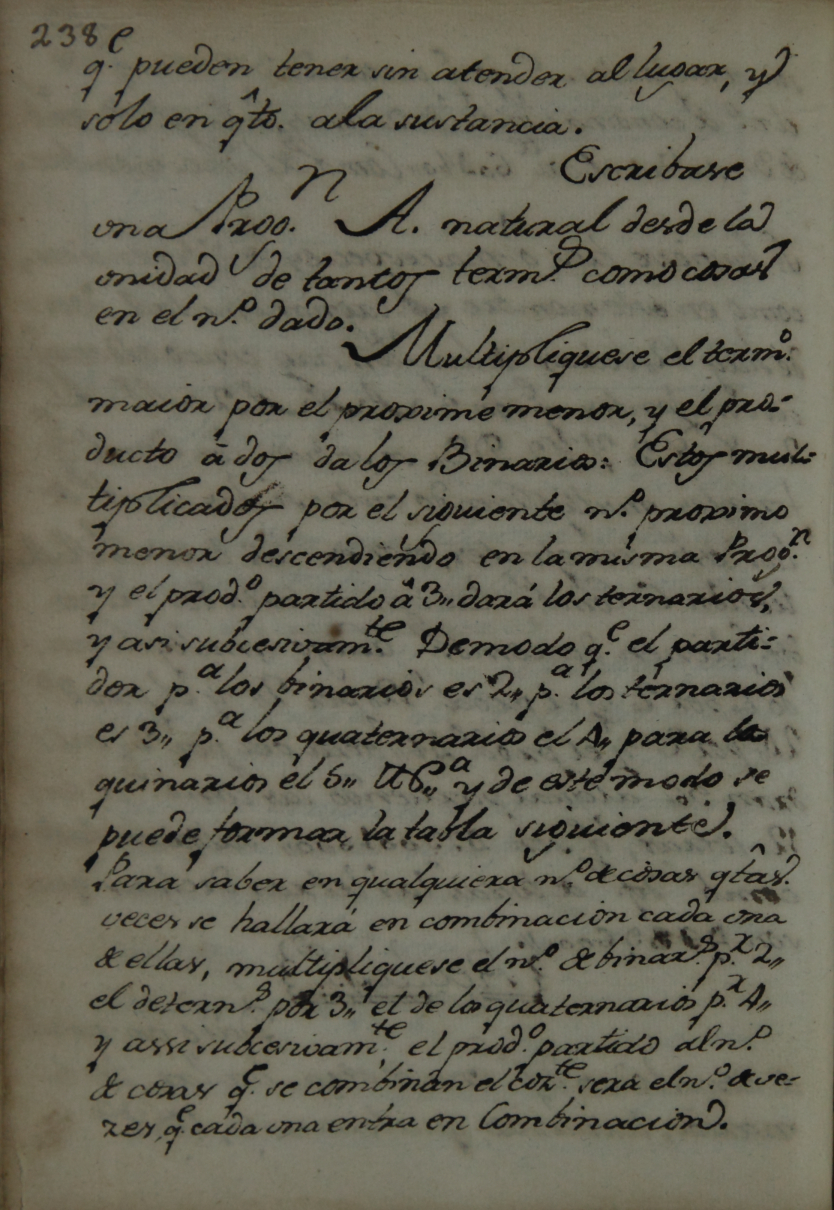 238
q.e pueden tener sin atender al lugar, y
solo en q̂to. ala sustancia.
Escribase
una Prog.n A. natural desde la
unidad de tantos term.s como cosas
en el n.o dado.
Multipliquese el term.o
maior por el proxime menor, y el pro-
ducto â dos da los Binarios: Estos mul-
tiplicados por el siguiente n.o proximo
menor descendiendo en la misma Prog.n
y el prod.o partido â 3,, dará los ternarios,
y asi subcesivam.te Demodo q.e el parti-
dor p.a los binarios es 2,, p.a los ternarios
es 3,, p.a los quaternarios el 4,, para los
quinarios el 5,, y de este modo se
puede formar la tabla siguiente.
Para saber en qualquiera n.o de cosas q̂tas.
veces se hallará en combinacion cada una
de ellas, multipliquese el n.o de binar.s p.r 2,,
el de tern.s por 3,, el de los quaternarios p.r 4,,
y assi subcesivam.te el prod.o partido al n.o
de cosas q.e se combinan el coz.te sera el n.o de ve-
zes, q.e cada una entra en Combinacion.